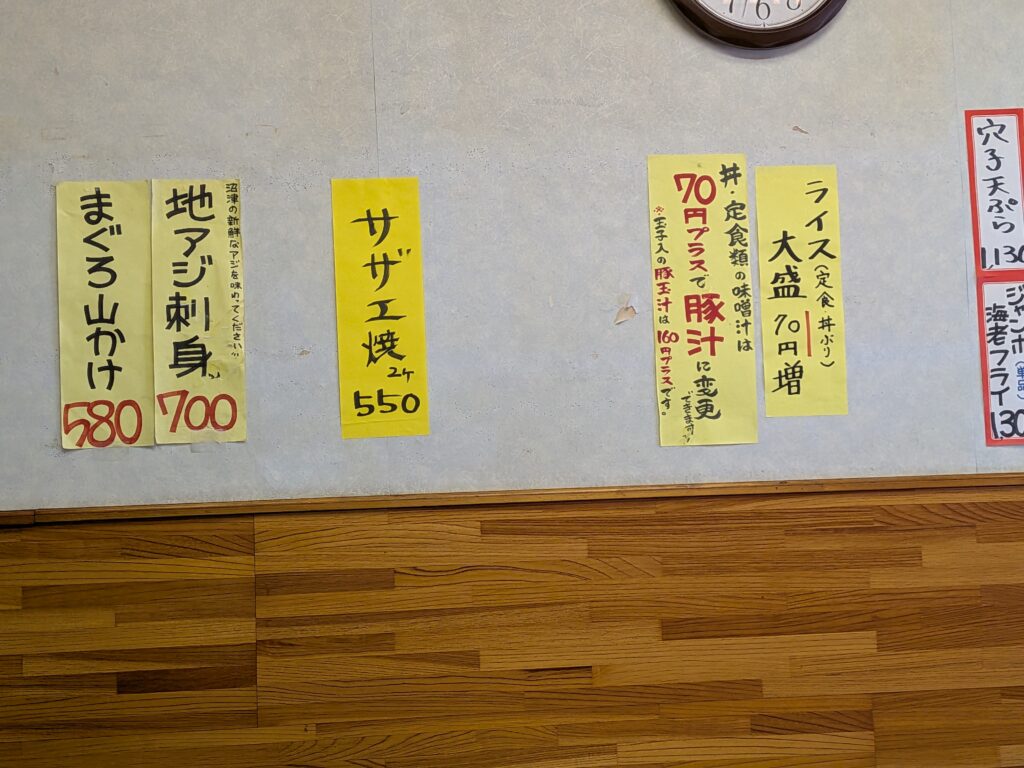 7 6 8
まぐろ山かけ
580
沼津の新鮮なアジを味わってください
地アジ刺身
700
サザエ焼
2ケ
550
丼・定食類の味噌汁は
70円プラスで豚汁に変更
できます
※玉子入の豚玉汁は160円プラスです。
ライス(定食 丼ぶり)
大盛 70円増
穴子天ぷら
1,130
ジャンボ(単品)
海老フライ